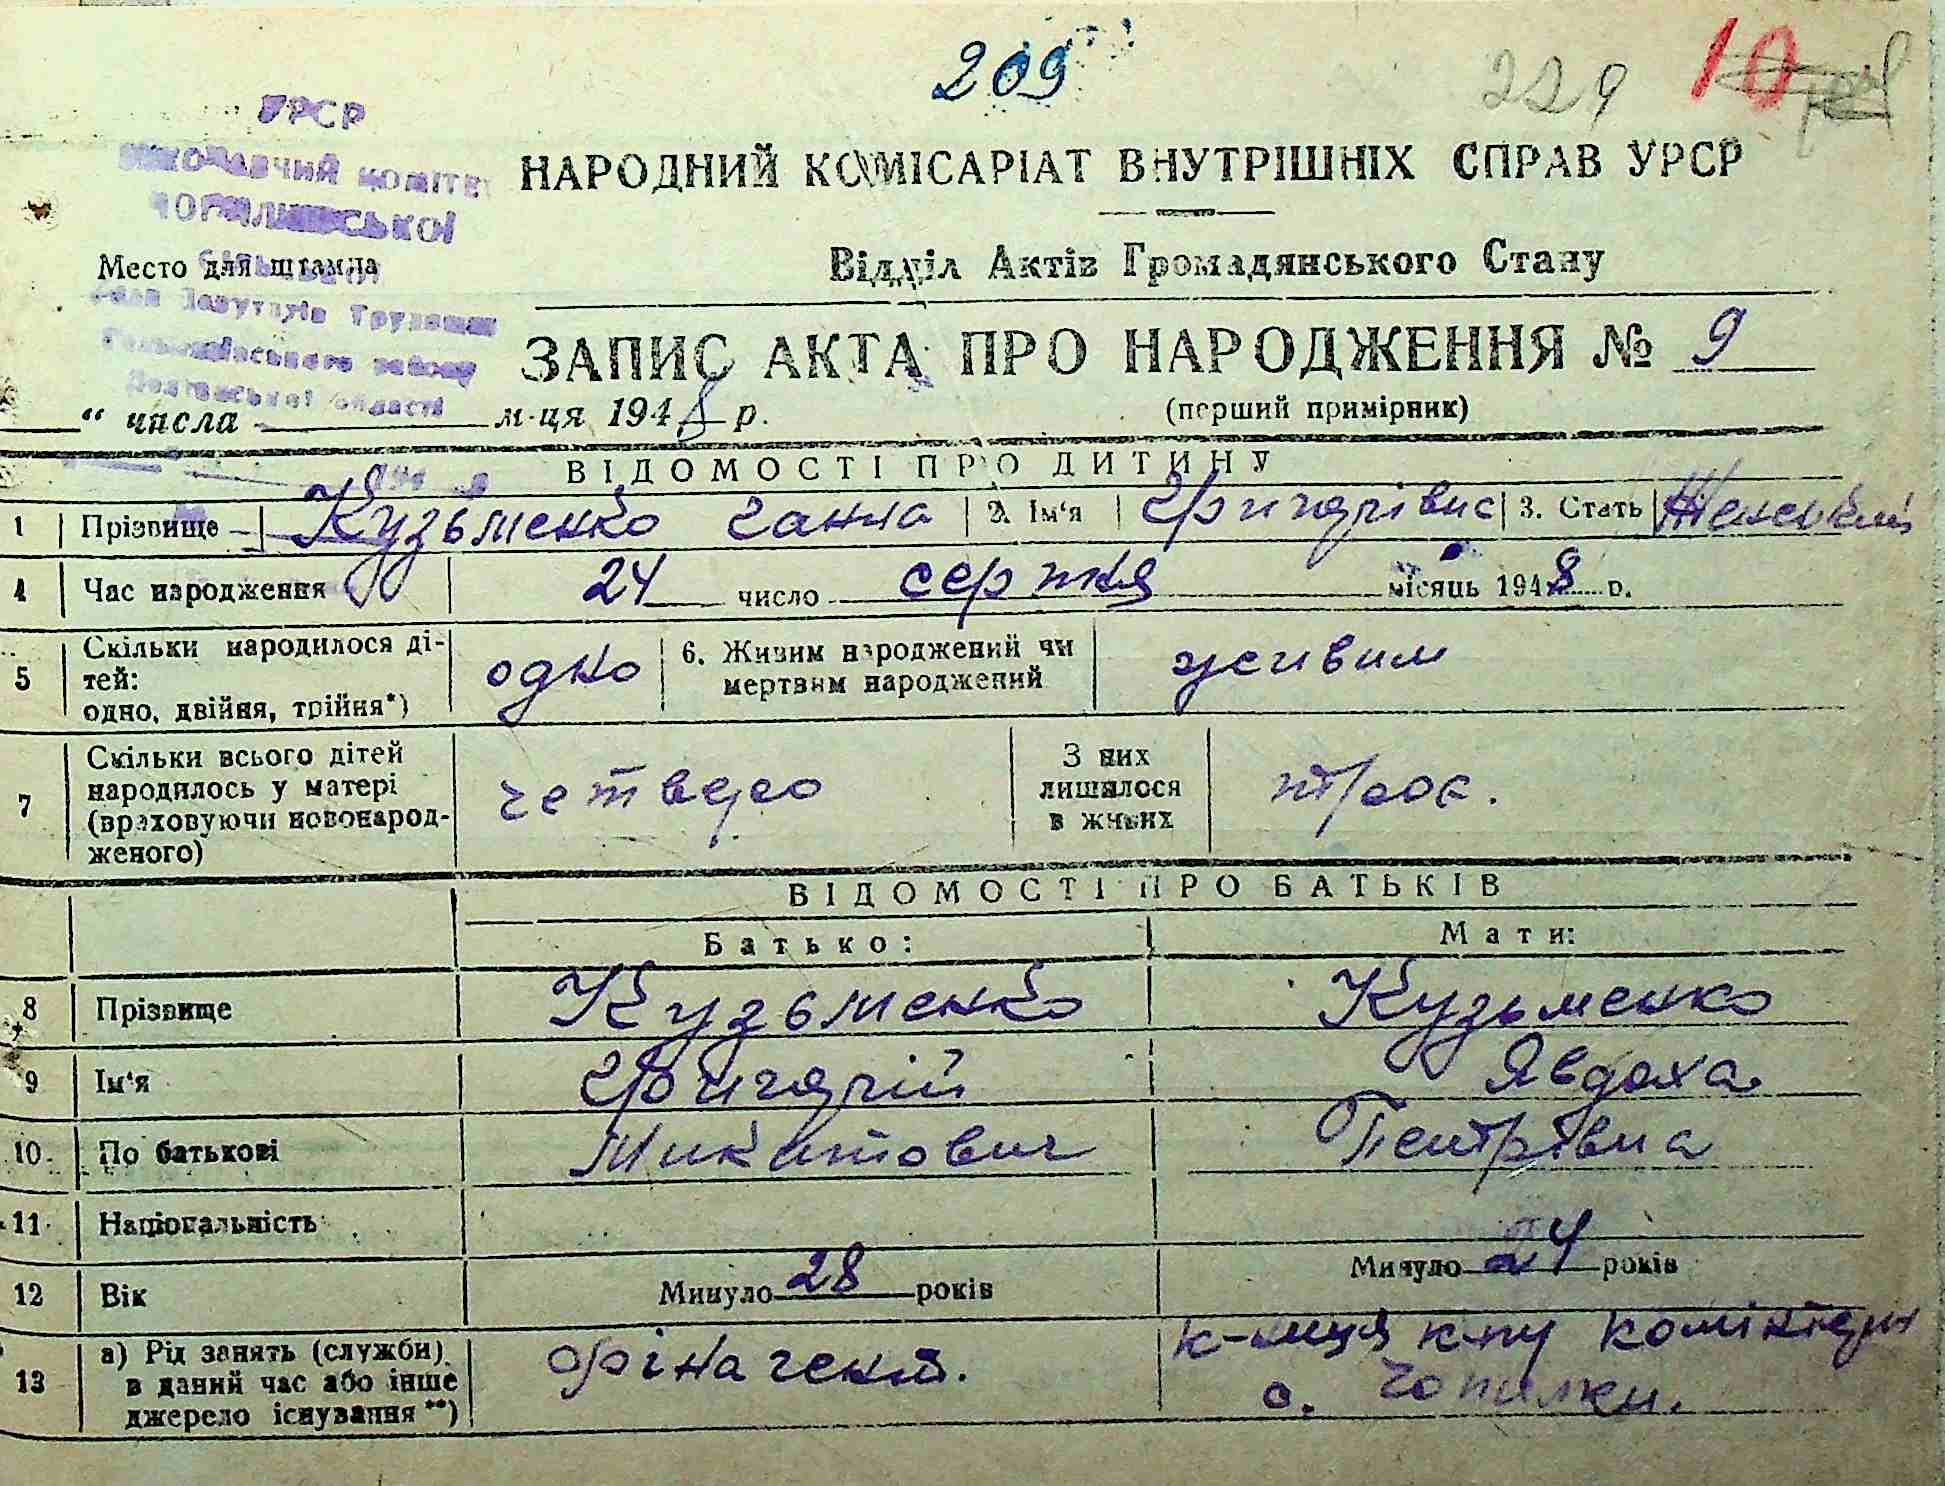 209
229
10
УРСР
ВИКОНАВЧИЙ КОМІТЕТ
НАРОДНИЙ КОМІСАРІАТ ВНУТРІШНІХ СПРАВ УРСР
Место для штампа
Відділ Актів Громадянського Стану
Ради Депутатів Трудящих
району
Полтавської області
ЗАПИС АКТА ПРО НАРОДЖЕННЯ № 9
“ числа м-ця 1948 р.
(перший примірник)
ВІДОМОСТІ ПРО ДИТИНУ
1 Прізвище Кузьменко Ганна 2. Ім‘я Григорівна 3. Стать
4 Час народження 24 число серпня місяць 1948 р.
5 Скільки народилося ді-
тей:
одно, двійня, трійня*) одно 6. Живим народжений чи
мертвим народжений живим
7 Скільки всього дітей
народилось у матері
(враховуючи новонарод-
женого) четверо З них
лишилося
в живих троє.
ВІДОМОСТІ ПРО БАТЬКІВ
Батько: Мати:
8 Прізвище Кузьменко Кузьменко
9 Ім‘я Григорій Явдоха
10 По батькові Микитович Петрівна
11 Національність
12 Вік Минуло 28 років Минуло 24 років
13 а) Рід занять (служби)
в даний час або інше
джерело існування **) фінагент. к-ниця к-пу Комінтерн
с. Чопилки.